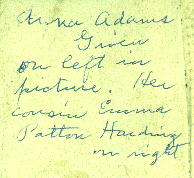 Anna Adams
Given
on left in
picture. Her
cousin Emma
Patton Harding
on right